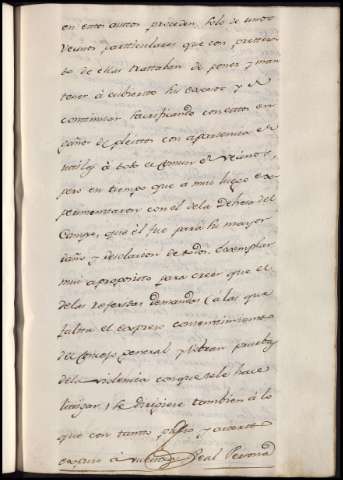 en estos autos proceden, solo de unos
vecinos particulares que con pretex
to de ellas trattaban de poner, y man
tener à cubierto su exceso y de
continuar sacrificando con estos en
gaños de pleittos con apariencia de
utiles à todo el comun de vecinos,
pero en tiempo que à mui luego ex
perimentaron con el de la Dehesa del
Campo, que él fue para su mayor
daño y desolacion de todos, exemplar
mui aproposito para creer que el
de las referidas demandas (à las que
faltta el expreso consentimiento
del Concejo general y sobran pruebas
de la violencia con que se le hace
litigar, se dirigiese tambien à lo
que con tanto pulso y acierto
expuso à vuestra Real Persona